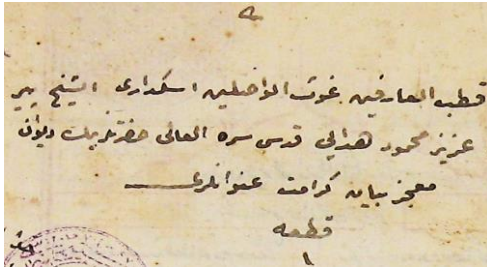 قطب العارفين غوث الواصلين اسكدارى الشيخ پير
عزيز محمود هدايى قدس سره العالى حضرتلرينك ديوان
معجز بيان كرامت عنوانلرى
قطعه
١